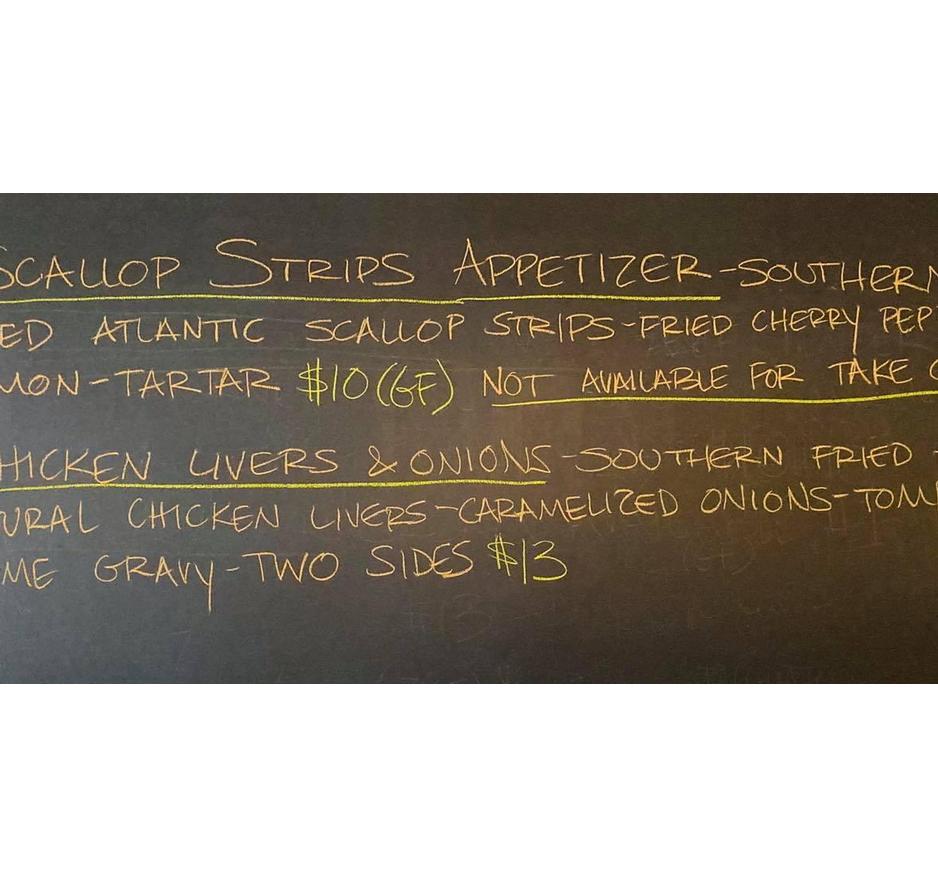 SCALLOP STRIPS APPETIZER-SOUTHERN
ED ATLANTIC SCALLOP STRIPS-FRIED CHERRY PEP
MON-TARTAR $10 (GF) NOT AVAILABLE FOR TAKE
HICKEN LIVERS & ONIONS-SOUTHERN FRIED -
URAL CHICKEN LIVERS-CARAMELIZED ONIONS-TOM
ME GRAVY-TWO SIDES $13